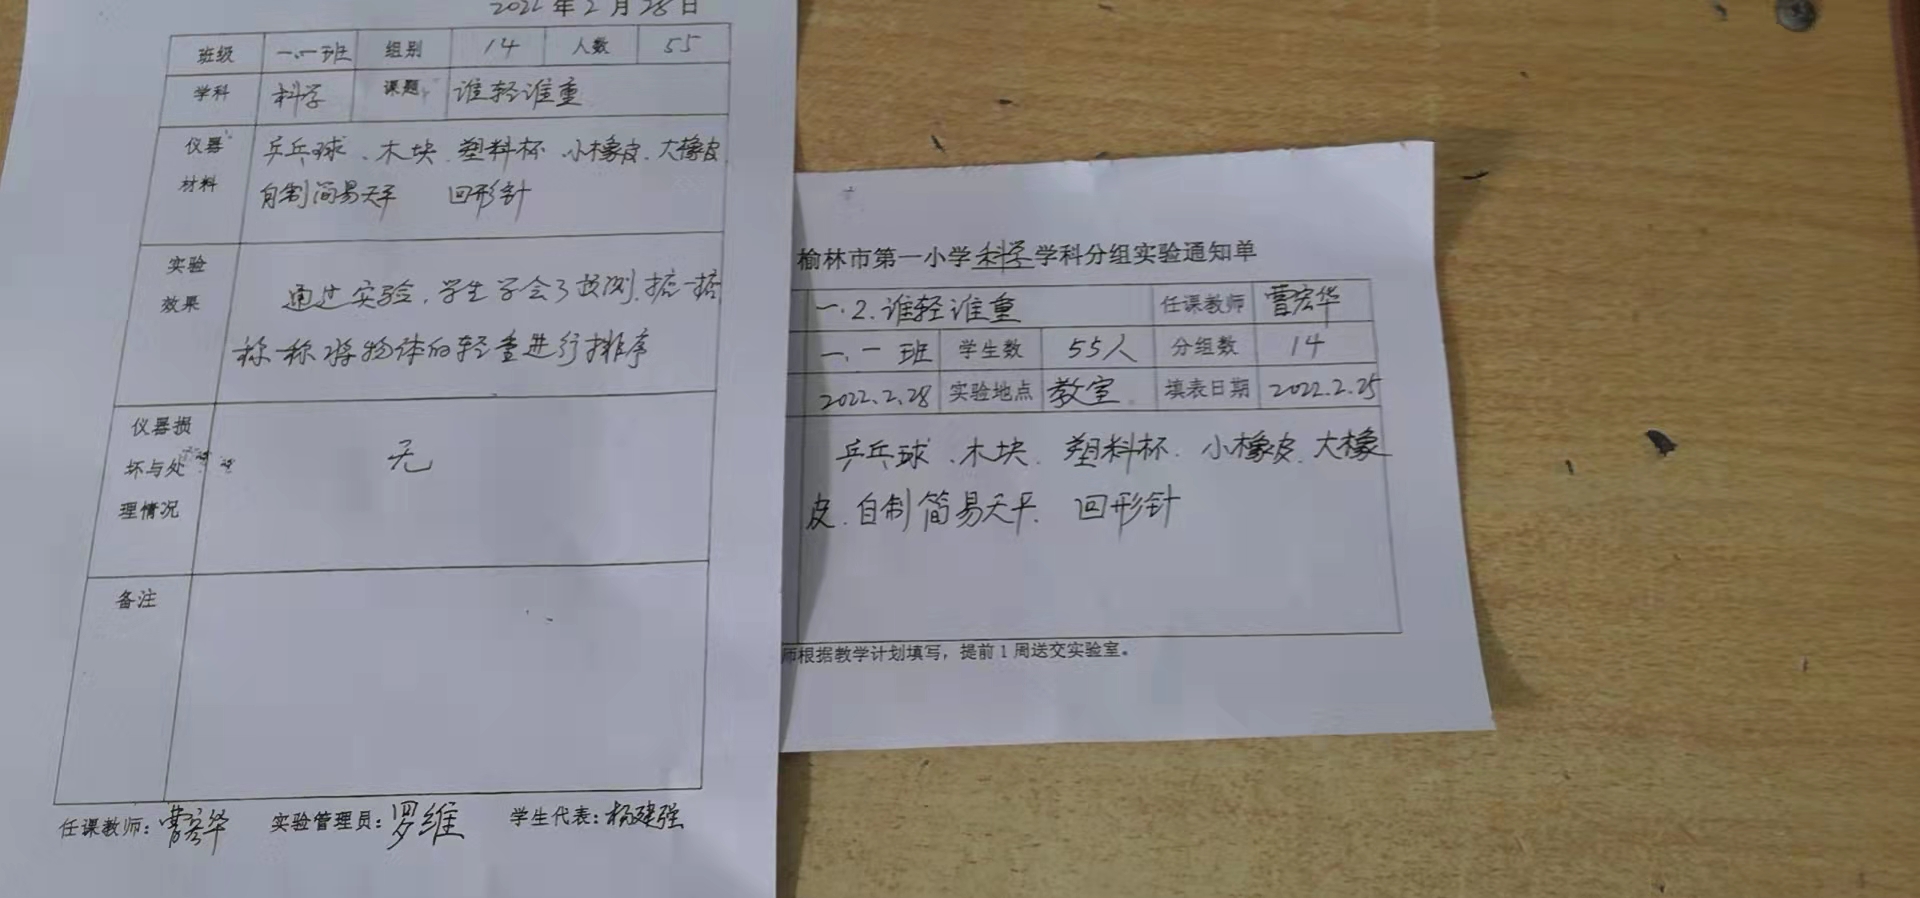 2022年2月28日
班级 一.一班 组别 14 人数 55
学科 科学 课题 谁轻谁重
仪器 乒乓球、木块、塑料杯、小橡皮、大橡皮
材料 自制简易天平 回形针
实验
效果 通过实验,学生学会了预测,掂一掂
称一称将物体的轻重进行排序
仪器损
坏与处
理情况
无
备注
任课教师:曹宏华 实验管理员:罗维 学生代表:杨建强
榆林市第一小学科学学科分组实验通知单
一.2.谁轻谁重 任课教师 曹宏华
一.一班 学生数 55人 分组数 14
2022.2.28 实验地点 教室 填表日期 2022.2.25
乒乓球、木块、塑料杯、小橡皮、大橡
皮、自制简易天平、回形针
师根据教学计划填写,提前1周送交实验室。